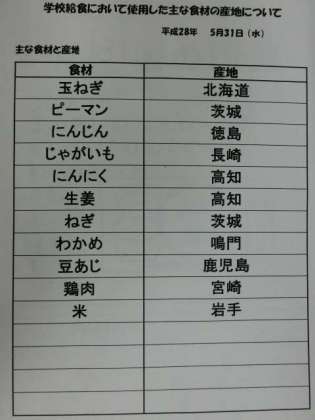 学校給食において使用した主な食材の産地について
平成28年 5月31日（水）
主な食材と産地
食材 産地
玉ねぎ 北海道
ピーマン 茨城
にんじん 徳島
じゃがいも 長崎
にんにく 高知
生姜 高知
ねぎ 茨城
わかめ 鳴門
豆あじ 鹿児島
鶏肉 宮崎
米 岩手